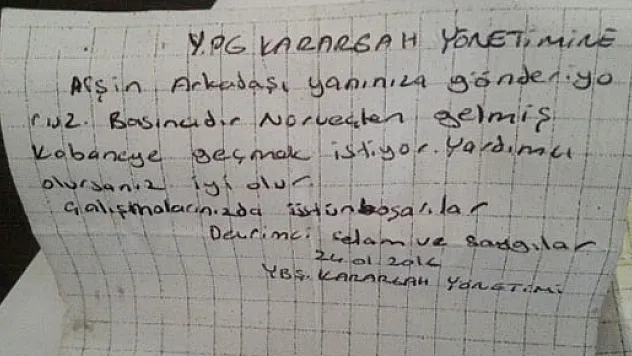 YPG KARARGAH YÖNETİMİNE
Afşin Arkadaşı yanınıza gönderiyo
ruz. Basıncıdır Norveçten gelmiş
Kobaneye geçmak istiyor. Yardımcı
olursanız iyi olur.
Çalışmalarınızda üstün başarılar
Devrimci selam ve saygılar
24 01 2016
YBŞ. KARARGAH YÖNETİMİ